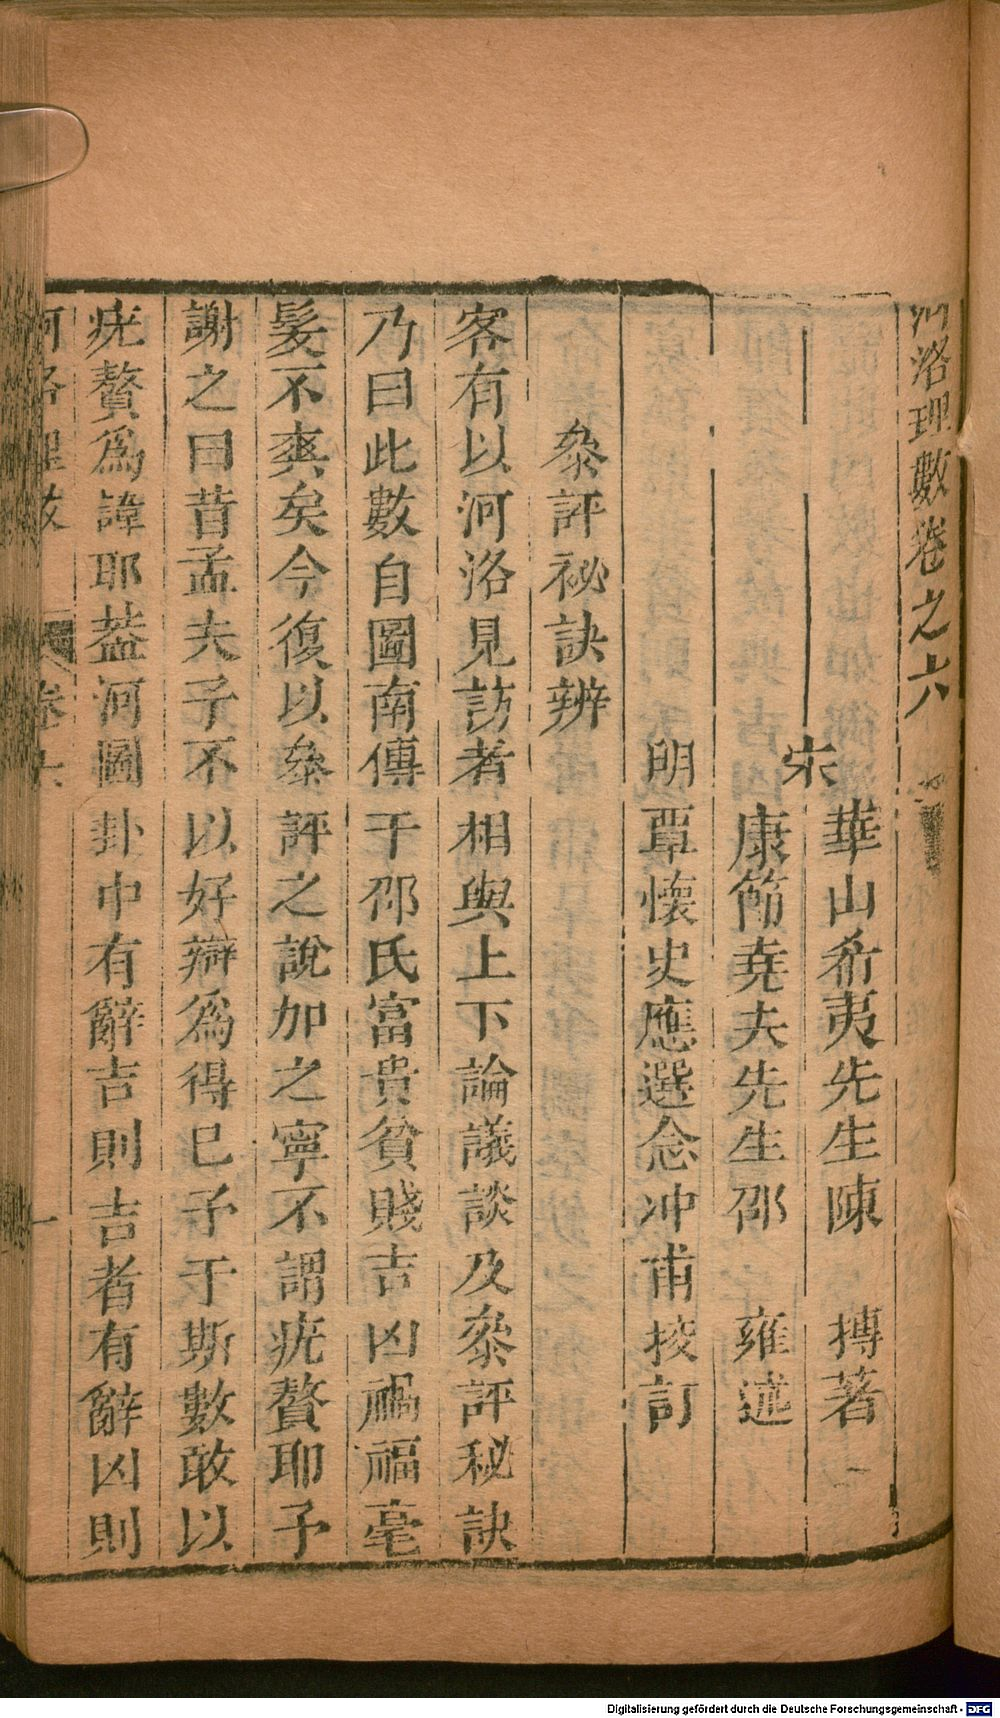 河洛理數卷之六
宋
華山希夷先生陳 摶著
康節堯夫先生邵 雍述
明覃懷史應選念冲甫挍訂
叅評祕訣辨
客有以河洛見訪者相與上下論議談及叅評秘訣
乃曰此數自圖南傳于邵氏富貴貧賤吉凶禍福毫
髮不爽矣今復以叅評之說加之寧不謂疣贅耶予
謝之曰昔孟夫子不以好辯爲得已予于斯數敢以
疣贅爲諱耶葢河圖卦中有辭吉則吉者有辭凶則
河洛理數
卷六
一
Digitalisierung gefördert durch die Deutsche Forschungsgemeinschaft - DFG